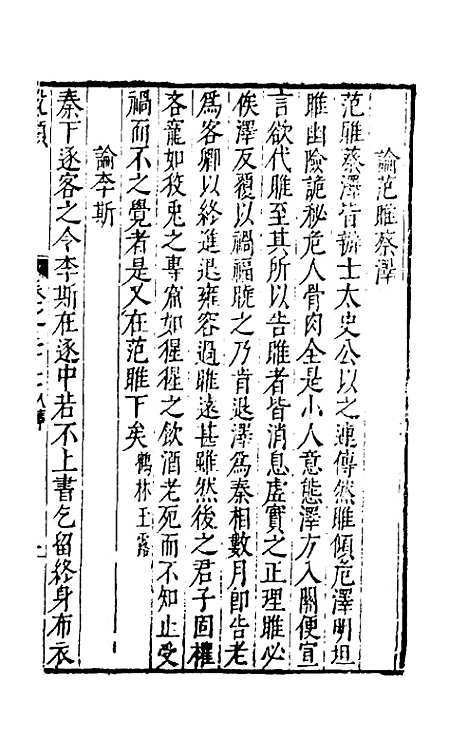 論范雎蔡澤
范雎蔡澤皆辯士太史公以之連傳然雎傾危澤明坦
雎幽險詭秘危人骨肉全是小人意態澤方入關便宣
言欲代雎至其所以告雎者皆消息虛實之正理雎必
俟澤反覆以禍福脧之乃肯退澤為秦相數月卽告老
為客卿以終進退雍容過雎遠甚雖然後之君子固權
吝寵如狡兎之專窟如猩猩之飲酒老死而不知止受
禍而不之覺者是又在范雎下矣 鶴林玉露
論李斯
秦下逐客之令李斯在逐中若不上書乞留終身布衣